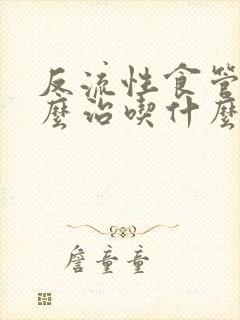 反流性食管
麼治喫什麼
詹童童